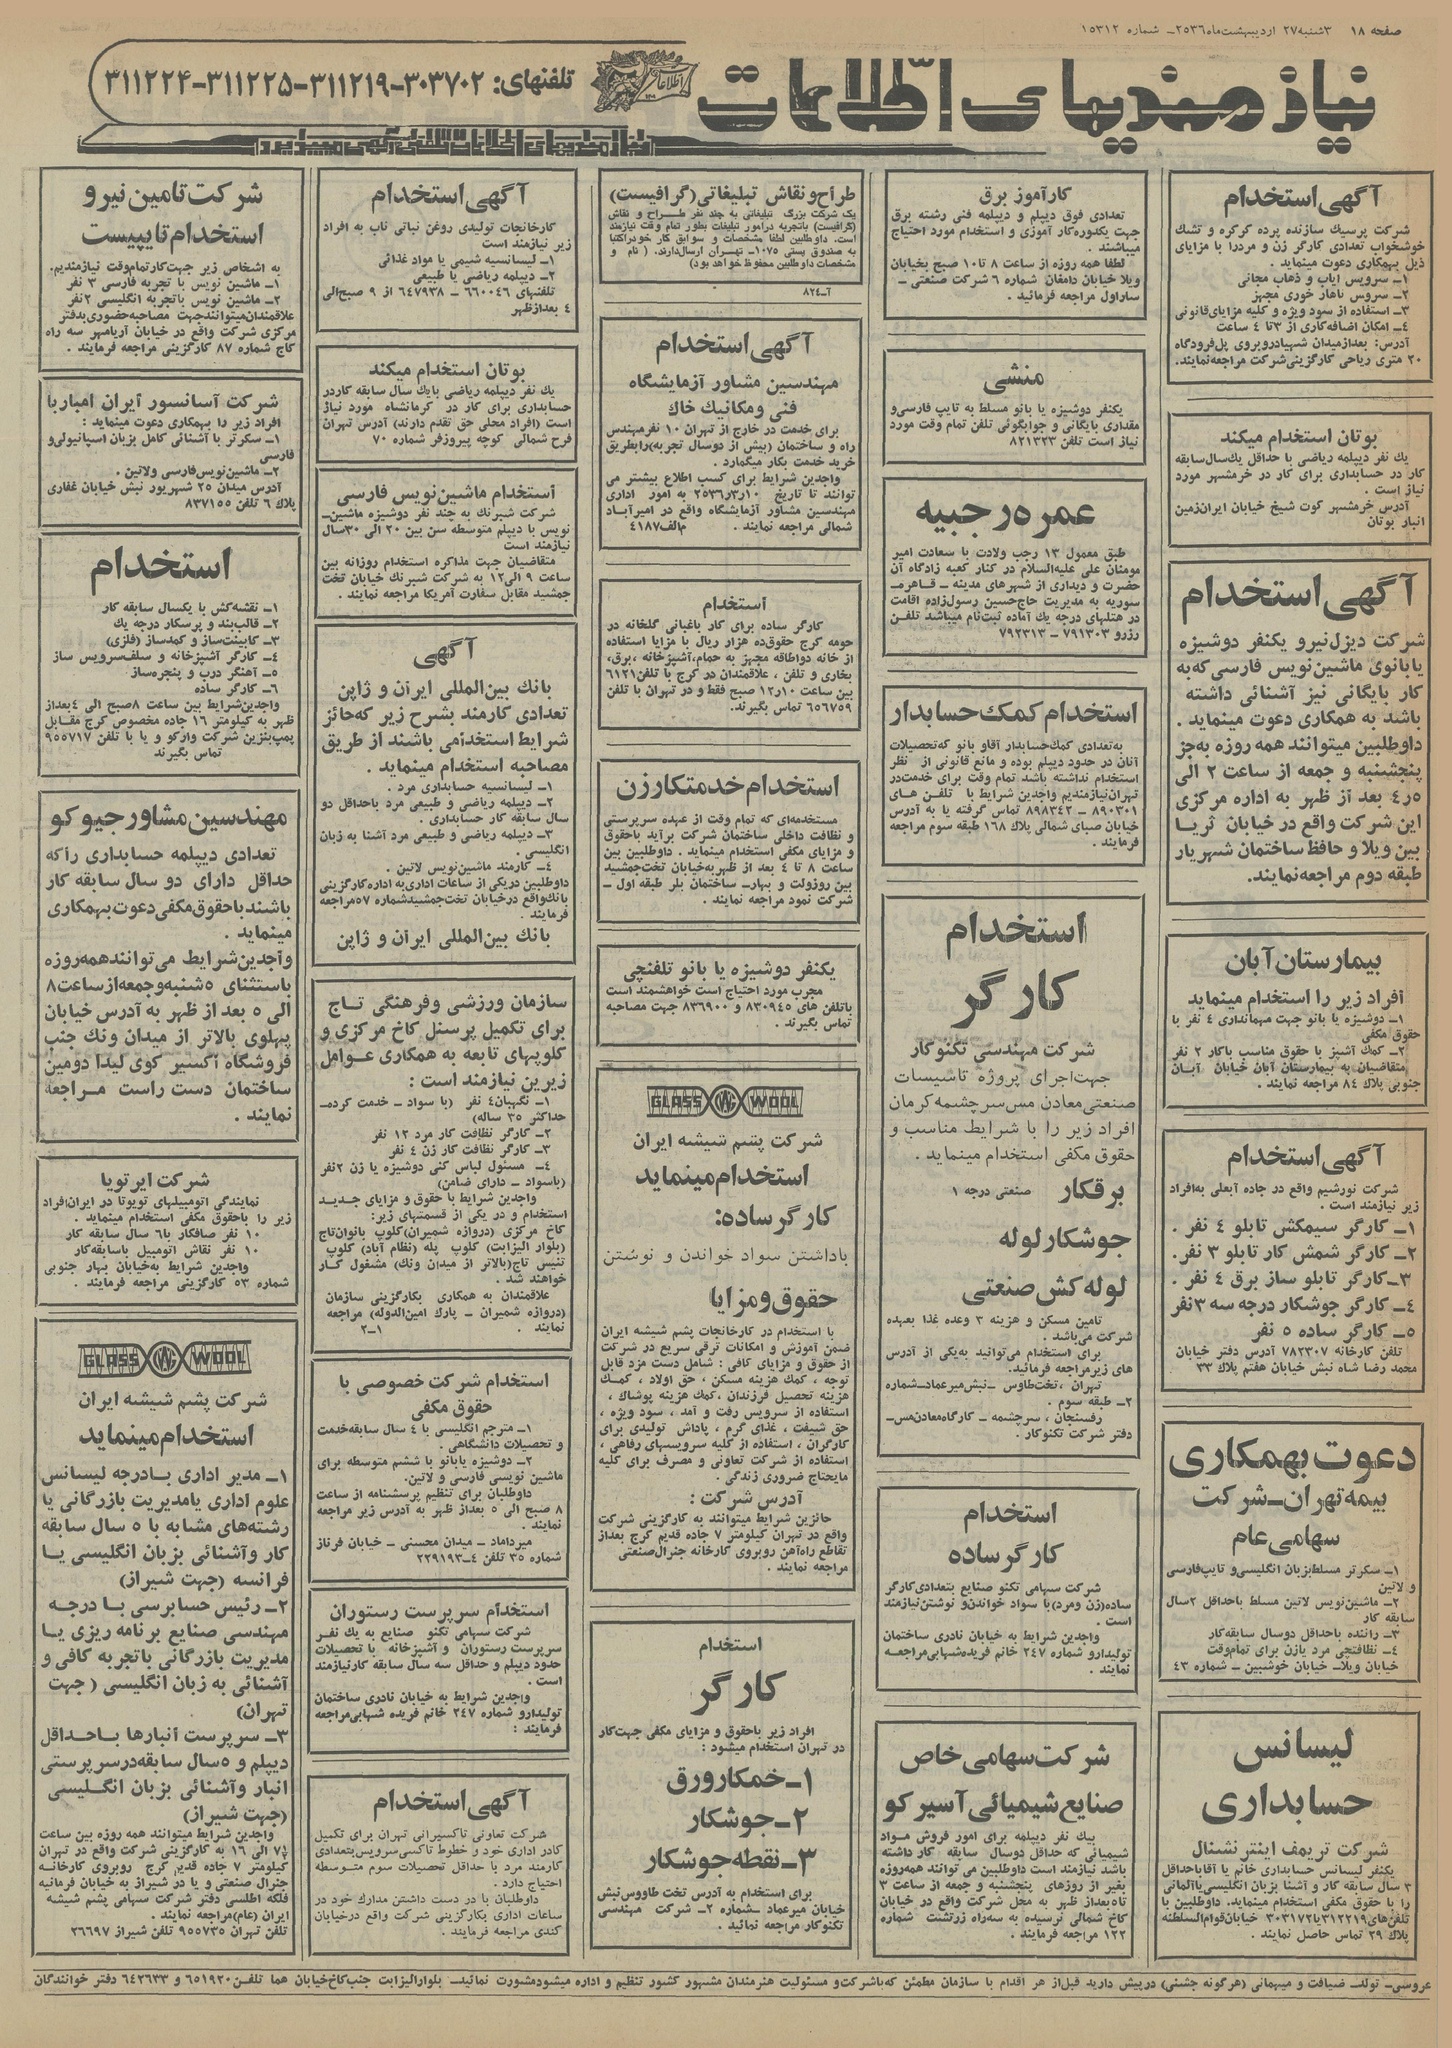 صفحه ۱۸    ۳شنبه ۲۷ اردیبهشت ماه ۲۵۳۶ـ شماره ۱۵۳۱۲
نیازمندیهای اطلاعات
تلفنهای: ۳۰۳۷۰۲ـ۳۱۱۲۱۹ـ۳۱۱۲۲۵ـ۳۱۱۲۲۴
نیازمندیهای اطلاعات تلفنی آگهی میپذیرد
آگهی استخدام
شرکت پرسیک سازنده پرده کرکره و تشک
خوشخواب تعدادی کارگر زن و مردرا با مزایای
ذیل بهمکاری دعوت مینماید .
۱ـ سرویس ایاب و ذهاب مجانی
۲ـ سرویس ناهار خوری مجهز
۳ـ استفاده از سود ویژه و کلیه مزایای‌قانونی
۴ـ امکان اضافه‌کاری از ۳تا ۴ ساعت
آدرس: بعدازمیدان شهیادروبروی پل‌فرودگاه
۲۰ متری ریاحی کارگزینی‌شرکت مراجعه‌نمایند.
بوتان استخدام میکند
یك نفر دیپلمه ریاضی با حداقل یك‌سال‌سابقه
کار در حسابداری برای کار در خرمشهر مورد
نیاز است .
آدرس خرمشهر کوت شیخ خیابان ایران‌زمین
انبار بوتان
آگهی استخدام
شرکت دیزل‌نیرو یکنفر دوشیزه
یابانوی ماشین‌نویس فارسی‌که‌به
کار بایگانی نیز آشنائی داشته
باشد به همکاری دعوت مینماید .
داوطلبین میتوانند همه روزه به‌جز
پنجشنبه و جمعه از ساعت ۲ الی
۴ر۵ بعد از ظهر به اداره مرکزی
این شرکت واقع در خیابان ثریا
بین ویلا و حافظ ساختمان شهریار
طبقه دوم مراجعه‌نمایند.
بیمارستان آبان
افراد زیر را استخدام مینماید
۱ـ دوشیزه یا بانو جهت مهمانداری ۴ نفر با
حقوق مکفی
۲ـ کمك آشپز با حقوق مناسب باکار ۲ نفر
متقاضیان به بیمارستان آبان خیابان آبان
جنوبی پلاك ۸۴ مراجعه نمایند .
آگهی استخدام
شرکت نورشیم واقع در جاده آبعلی به‌افراد
زیر نیازمند است .
۱ـ کارگر سیمکش تابلو ۴ نفر .
۲ـ کارگر شمش کار تابلو ۳ نفر.
۳ـ کارگر تابلو ساز برق ۴ نفر .
۴ـ کارگر جوشکار درجه سه ۳نفر
۵ـ کارگر ساده ۵ نفر
تلفن کارخانه ۷۸۲۳۰۷ آدرس دفتر خیابان
محمد رضا شاه نبش خیابان هفتم پلاك ۳۳
دعوت بهمکاری
بیمه‌تهران‌ـشرکت
سهامی‌عام
۱ـ سکرتر مسلط‌بزبان انگلیسی‌و تایپ‌فارسی
و لاتین
۲ـ ماشین‌نویس لاتین مسلط باحداقل ۲سال
سابقه کار
۳ـ راننده باحداقل دوسال سابقه‌کار
۴ـ نظافتچی مرد یازن برای تمام‌وقت
خیابان ویلاـ خیابان خوشبین ـ شماره ۴۳
لیسانس
حسابداری
شرکت تریمف اینتر نشنال
یکنفر لیسانس حسابداری خانم یا آقاباحداقل
۳ سال سابقه کار و آشنا بزبان انگلیسی‌یاآلمانی
را با حقوق مکفی استخدام مینماید، داوطلبین با
تلفن‌های۳۱۲۲۱۹یا۳۰۳۱۷۲ خیابان‌قوام‌السلطنه
پلاك ۲۹ تماس حاصل نمایند .
کارآموز برق
تعدادی فوق دیپلم و دیپلمه فنی رشته برق
جهت یکدوره‌کار آموزی و استخدام مورد احتیاج
میباشند .
لطفا همه روزه از ساعت ۸ تا۱۰ صبح بخیابان
ویلا خیابان دامغان شماره ۶ شرکت صنعتی ـ
ساراول مراجعه فرمائید .
منشی
یکنفر دوشیزه یا بانو مسلط به تایپ فارسی‌و
مقداری بایگانی و جوابگوئی تلفن تمام وقت مورد
نیاز است تلفن ۸۲۱۳۲۳
عمره رجبیه
طبق معمول ۱۳ رجب ولادت با سعادت امیر
مومنان علی علیه‌السلام در کنار کعبه زادگاه آن
حضرت و دیداری از شهرهای مدینه ـ قاهره‌ـ
سوریه به مدیریت حاج‌حسین رسول‌زاده اقامت
در هتلهای درجه یك آماده ثبت‌نام میباشد تلفن
رزرو ۷۹۱۳۰۳ ـ ۷۹۲۳۱۳
استخدام کمك حسابدار
به‌تعدادی کمك‌حسابدار آقاو بانو که‌تحصیلات
آنان در حدود دیپلم بوده و مانع قانونی از نظر
استخدام نداشته باشد تمام وقت برای خدمت‌در
تهران‌نیازمندیم واجدین شرایط با تلفن های
۸۹۰۳۰۱ ـ ۸۹۸۳۴۲ تماس گرفته یا به آدرس
خیابان صبای شمالی پلاك ۱۶۸ طبقه سوم مراجعه
فرمایند .
استخدام
کارگر
شرکت مهندسی تکنوکار
جهت‌اجرای پروژه تاسیسات
صنعتی‌معادن مس‌سرچشمه‌کرمان
افراد زیر را با شرایط مناسب و
حقوق مکفی استخدام مینماید .
برقکار صنعتی درجه ۱
جوشکارلوله
لوله‌کش‌صنعتی
تامین مسکن و هزینه ۳ وعده غذا بعهده
شرکت می‌باشد .
برای استخدام می‌توانید به‌یکی از آدرس
های زیرمراجعه فرمائید.
تهران ، تخت‌طاوس ـنبش‌میرعمادـشماره
۲ـ طبقه سوم .
رفسنجان ، سرچشمه ـ کارگاه‌معادن‌مس‌ـ
دفتر شرکت تکنوکار .
استخدام
کارگر ساده
شرکت سهامی تکنو صنایع بتعدادی‌کارگر
ساده(زن ومرد)با سواد خواندن‌و نوشتن‌نیازمند
است .
واجدین شرایط به خیابان نادری ساختمان
تولیدارو شماره ۲۴۷ خانم فریده‌شهابی‌مراجعه
نمایند .
شرکت سهامی خاص
صنایع شیمیائی آسیرکو
بیك نفر دیپلمه برای امور فروش مواد
شیمیائی که حداقل دوسال سابقه کار داشته
باشد نیازمند است داوطلبین می توانند همه‌روزه
بغیر از روزهای پنجشنبه و جمعه از ساعت ۳
تا۵بعداز ظهر به محل شرکت واقع در خیابان
کاخ شمالی نرسیده به سه‌راه زرتشت شماره
۱۲۲ مراجعه فرمایند .
طراح ونقاش تبلیغاتی(گرافیست)
یک شرکت بزرگ تبلیغاتی به چند نفر طراح و نقاش
(گرافیست) باتجربه درامور تبلیغات بطور تمام وقت نیازمند
است. داوطلبین لطفا مشخصات و سوابق کار خودراکتبا
به صندوق پستی ۱۰۷۵ـ تهران ارسال‌دارند. ( نام و
مشخصات داوطلبین محفوظ خواهد بود)
آـ۸۲۴
آگهی استخدام
مهندسین مشاور آزمایشگاه
فنی ومکانیك خاك
برای خدمت در خارج از تهران ۱۰ نفرمهندس
راه و ساختمان (بیش از دوسال تجربه)رابطریق
خرید خدمت بکار میگمارد .
واجدین شرایط برای کسب اطلاع بیشتر می
توانند تا تاریخ ۱۰ر۳ر۲۵۳۶ به امور اداری
مهندسین مشاور آزمایشگاه واقع در امیرآباد
شمالی مراجعه نمایند . م‌الف۴۱۸۷
استخدام
کارگر ساده برای کار باغبانی گلخانه در
حومه کرج حقوق‌ده هزار ریال با مزایا استفاده
از خانه دواطاقه مجهز به حمام،آشپزخانه ،برق،
بخاری و تلفن ، علاقمندان در کرج با تلفن۶۱۲۱
بین ساعت ۱۰ر۱۲ صبح فقط و در تهران با تلفن
۶۵۶۷۵۹ تماس بگیرند.
استخدام خدمتکارزن
مستخدمه‌ای که تمام وقت از عهده سرپرستی
و نظافت داخلی ساختمان شرکت برآید باحقوق
و مزایای مکفی استخدام مینماید . داوطلبین بین
ساعت ۸ تا ۴ بعد از ظهربه‌خیابان تخت‌جمشید
بین روزولت و بهارـ ساختمان بلر طبقه اول ـ
شرکت نمود مراجعه نمایند .
یکنفر دوشیزه یا بانو تلفنچی
مجرب مورد احتیاج است خواهشمند است
باتلفن های ۸۳۰۹۴۵ و ۸۳۶۹۰۰ جهت مصاحبه
تماس بگیرند .
GLASS WOOL
شرکت پشم شیشه ایران
استخدام مینماید
کارگر ساده:
باداشتن سواد خواندن و نوشتن
حقوق و مزایا
با استخدام در کارخانجات پشم شیشه ایران
ضمن آموزش و امکانات ترقی سریع در شرکت
از حقوق و مزایای کافی : شامل دست مزد قابل
توجه ، کمك هزینه مسکن ، حق اولاد ، کمك
هزینه تحصیل فرزندان ،کمك هزینه پوشاك ،
استفاده از سرویس رفت و آمد ، سود ویژه ،
حق شیفت ، غذای گرم ، پاداش تولیدی برای
کارگران ، استفاده از کلیه سرویسهای رفاهی ،
استفاده از شرکت تعاونی و مصرف برای کلیه
مایحتاج ضروری زندگی .
آدرس شرکت :
حائزین شرایط میتوانند به کارگزینی شرکت
واقع در تهران کیلومتر ۷ جاده قدیم کرج بعداز
تقاطع راه‌آهن روبروی کارخانه جنرال‌صنعتی
مراجعه نمایند .
استخدام
کارگر
افراد زیر باحقوق و مزایای مکفی جهت‌کار
در تهران استخدام میشود :
۱ـ خمکارورق
۲ـ جوشکار
۳ـ نقطه‌جوشکار
برای استخدام به آدرس تخت طاووس‌نبش
خیابان میرعماد ـشماره ۲ـ شرکت مهندسی
تکنوکار مراجعه نمائید .
آگهی استخدام
کارخانجات تولیدی روغن نباتی ناب به افراد
زیر نیازمند است
۱ـ لیسانسیه شیمی یا مواد غذائی
۲ـ دیپلمه ریاضی یا طبیعی
تلفنهای ۶۶۰۰۴۶ ـ ۶۴۷۹۳۸ از ۹ صبح‌الی
۴ بعدازظهر
بوتان استخدام میکند
یك نفر دیپلمه ریاضی بایك سال سابقه کاردر
حسابداری برای کار در کرمانشاه مورد نیاز
است (افراد محلی حق تقدم دارند) آدرس تهران
فرح شمالی کوچه پیروزفر شماره ۷۰
استخدام ماشین‌نویس فارسی
شرکت شبرنك به چند نفر دوشیزه ماشین‌ـ
نویس با دیپلم متوسطه سن بین ۲۰ الی ۳۰سال
نیازمند است
متقاضیان جهت مذاکره استخدام روزانه بین
ساعت ۹ الی۱۲ به شرکت شبرنك خیابان تخت
جمشید مقابل سفارت آمریکا مراجعه نمایند .
آگهی
بانك بین‌المللی ایران و ژاپن
تعدادی کارمند بشرح زیر که‌حائز
شرایط استخدامی باشند از طریق
مصاحبه استخدام مینماید .
۱ـ لیسانسیه حسابداری مرد .
۲ـ دیپلمه ریاضی و طبیعی مرد باحداقل دو
سال سابقه کار حسابداری .
۳ـ دیپلمه ریاضی و طبیعی مرد آشنا به زبان
انگلیسی .
۴ـ کارمند ماشین‌نویس لاتین .
داوطلبین دریکی از ساعات اداری‌به اداره‌کارگزینی
بانك‌واقع درخیابان تخت‌جمشیدشماره ۵۷مراجعه
فرمایند .
بانك بین‌المللی ایران و ژاپن
سازمان ورزشی وفرهنگی تاج
برای تکمیل پرسنل کاخ مرکزی و
کلوپهای تابعه به همکاری عوامل
زیرین نیازمند است :
۱ـ نگهبان۴ نفر (با سواد ـ خدمت کرده‌ـ
حداکثر ۳۵ ساله)
۲ـ کارگر نظافت کار مرد ۱۲ نفر
۳ـ کارگر نظافت کار زن ۴ نفر
۴ـ مسئول لباس کنی دوشیزه یا زن ۲نفر
(باسواد ـ دارای ضامن)
واجدین شرایط با حقوق و مزایای جدید
استخدام و در یکی از قسمتهای زیر:
کاخ مرکزی (دروازه شمیران)کلوپ بانوان‌تاج
(بلوار الیزابت) کلوپ پله (نظام آباد) کلوپ
تنیس تاج(بالاتر از میدان ونك) مشغول کار
خواهند شد .
علاقمندان به همکاری بکارگزینی سازمان
(دروازه شمیران ـ پارك امین‌الدوله) مراجعه
نمایند . ۱ـ۲
استخدام شرکت خصوصی با
حقوق مکفی
۱ـ مترجم انگلیسی با ۴ سال سابقه‌خدمت
و تحصیلات دانشگاهی .
۲ـ دوشیزه یابانو با ششم متوسطه برای
ماشین نویسی فارسی و لاتین.
داوطلبان برای تنظیم پرسشنامه از ساعت
۸ صبح الی ۵ بعداز ظهر به آدرس زیر مراجعه
نمایند .
میرداماد ـ میدان محسنی ـ خیابان فرناز
شماره ۳۵ تلفن ۴ـ۲۲۹۱۹۳
استخدام سرپرست رستوران
شرکت سهامی تکنو صنایع به یك نفر
سرپرست رستوران و آشپزخانه با تحصیلات
حدود دیپلم و حداقل سه سال سابقه کارنیازمند
است .
واجدین شرایط به خیابان نادری ساختمان
تولیدارو شماره ۲۴۷ خانم فریده شهابی‌مراجعه
فرمایند :
آگهی استخدام
شرکت تعاونی تاکسیرانی تهران برای تکمیل
کادر اداری خود و خطوط تاکسی‌سرویس‌بتعدادی
کارمند مرد با حداقل تحصیلات سوم متوسطه
احتیاج دارد .
داوطلبان با در دست داشتن مدارك خود در
ساعات اداری بکارگزینی شرکت واقع درخیابان
کندی مراجعه فرمایند .
شرکت تامین نیرو
استخدام تایپیست
به اشخاص زیر جهت‌کارتمام‌وقت نیازمندیم.
۱ـ ماشین نویس با تجربه فارسی ۳ نفر
۲ـ ماشین نویس باتجربه انگلیسی ۲نفر
علاقمندان‌میتوانندجهت مصاحبه‌حضوری‌بدفتر
مرکزی شرکت واقع در خیابان آریامهر سه راه
کاج شماره ۸۷ کارگزینی مراجعه فرمایند .
شرکت آسانسور ایران امباربا
افراد زیر را بهمکاری دعوت مینماید :
۱ـ سکرتر با آشنائی کامل بزبان اسپانیولی‌و
فارسی
۲ـ ماشین‌نویس‌فارسی ولاتین .
آدرس میدان ۲۵ شهریور نبش خیابان غفاری
پلاك ۶ تلفن ۸۳۷۱۵۵
استخدام
۱ـ نقشه‌کش با یکسال سابقه کار
۲ـ قالب‌بند و پرسکار درجه یك
۳ـ کابینت‌ساز و کمدساز (فلزی)
۴ـ کارگر آشپزخانه و سلف‌سرویس ساز
۵ـ آهنگر درب و پنجره‌ساز
۶ـ کارگر ساده
واجدین‌شرایط بین ساعت ۸صبح الی ۴بعداز
ظهر به کیلومتر ۱۶ جاده مخصوص کرج مقابل
پمپ‌بنزین شرکت وارکو و یا با تلفن ۹۵۵۷۱۷
تماس بگیرند
مهندسین مشاور جیوکو
تعدادی دیپلمه حسابداری راکه
حداقل دارای دو سال سابقه کار
باشندباحقوق مکفی‌دعوت‌بهمکاری
مینماید .
واجدین‌شرایط می‌توانندهمه‌روزه
باستثنای ۵شنبه‌وجمعه‌ازساعت۸
الی ۵ بعد از ظهر به آدرس خیابان
پهلوی بالاتر از میدان ونك جنب
فروشگاه اکسیر کوی لیدا دومین
ساختمان دست راست مراجعه
نمایند .
شرکت ایرتویا
نمایندگی اتومبیلهای تویوتا در ایران‌افراد
زیر را باحقوق مکفی استخدام مینماید .
۱۰ نفر صافکار با۶ سال سابقه کار
۱۰ نفر نقاش اتومبیل باسابقه‌کار
واجدین شرایط به‌خیابان بهار جنوبی
شماره ۵۳ کارگزینی مراجعه فرمایند .
GLASS WOOL
شرکت پشم شیشه ایران
استخدام مینماید
۱ـ مدیر اداری بادرجه لیسانس
علوم اداری یامدیریت بازرگانی یا
رشته‌های مشابه با ۵ سال سابقه
کار وآشنائی بزبان انگلیسی یا
فرانسه (جهت شیراز)
۲ـ رئیس حسابرسی با درجه
مهندسی صنایع برنامه ریزی یا
مدیریت بازرگانی باتجربه کافی و
آشنائی به زبان انگلیسی ( جهت
تهران)
۳ـ سرپرست انبارها باحداقل
دیپلم و ۵سال سابقه‌درسرپرستی
انبار وآشنائی بزبان انگلیسی
(جهت شیراز)
واجدین شرایط میتوانند همه روزه بین ساعت
۷ الی ۱۶ به کارگزینی شرکت واقع در تهران
کیلومتر ۷ جاده قدیم کرج روبروی کارخانه
جنرال صنعتی و یا در شیراز به خیابان فرمانیه
فلکه اطلسی دفتر شرکت سهامی پشم شیشه
ایران (عام)مراجعه نمایند .
تلفن تهران ۹۵۵۷۳۵ تلفن شیراز ۳۶۶۹۷
عروسی‌ـ تولدـ ضیافت و میهمانی (هرگونه جشنی) درپیش دارید قبل‌از هر اقدام با سازمان مطمئن که‌باشرکت‌و مسئولیت هنرمندان مشهور کشور تنظیم و اداره میشودمشورت نمائیدـ بلوارالیزابت جنب‌کاخ‌خیابان هما تلفن‌ـ۶۵۱۹۲۰ و ۶۴۲۶۳۳ دفتر خوانندگان